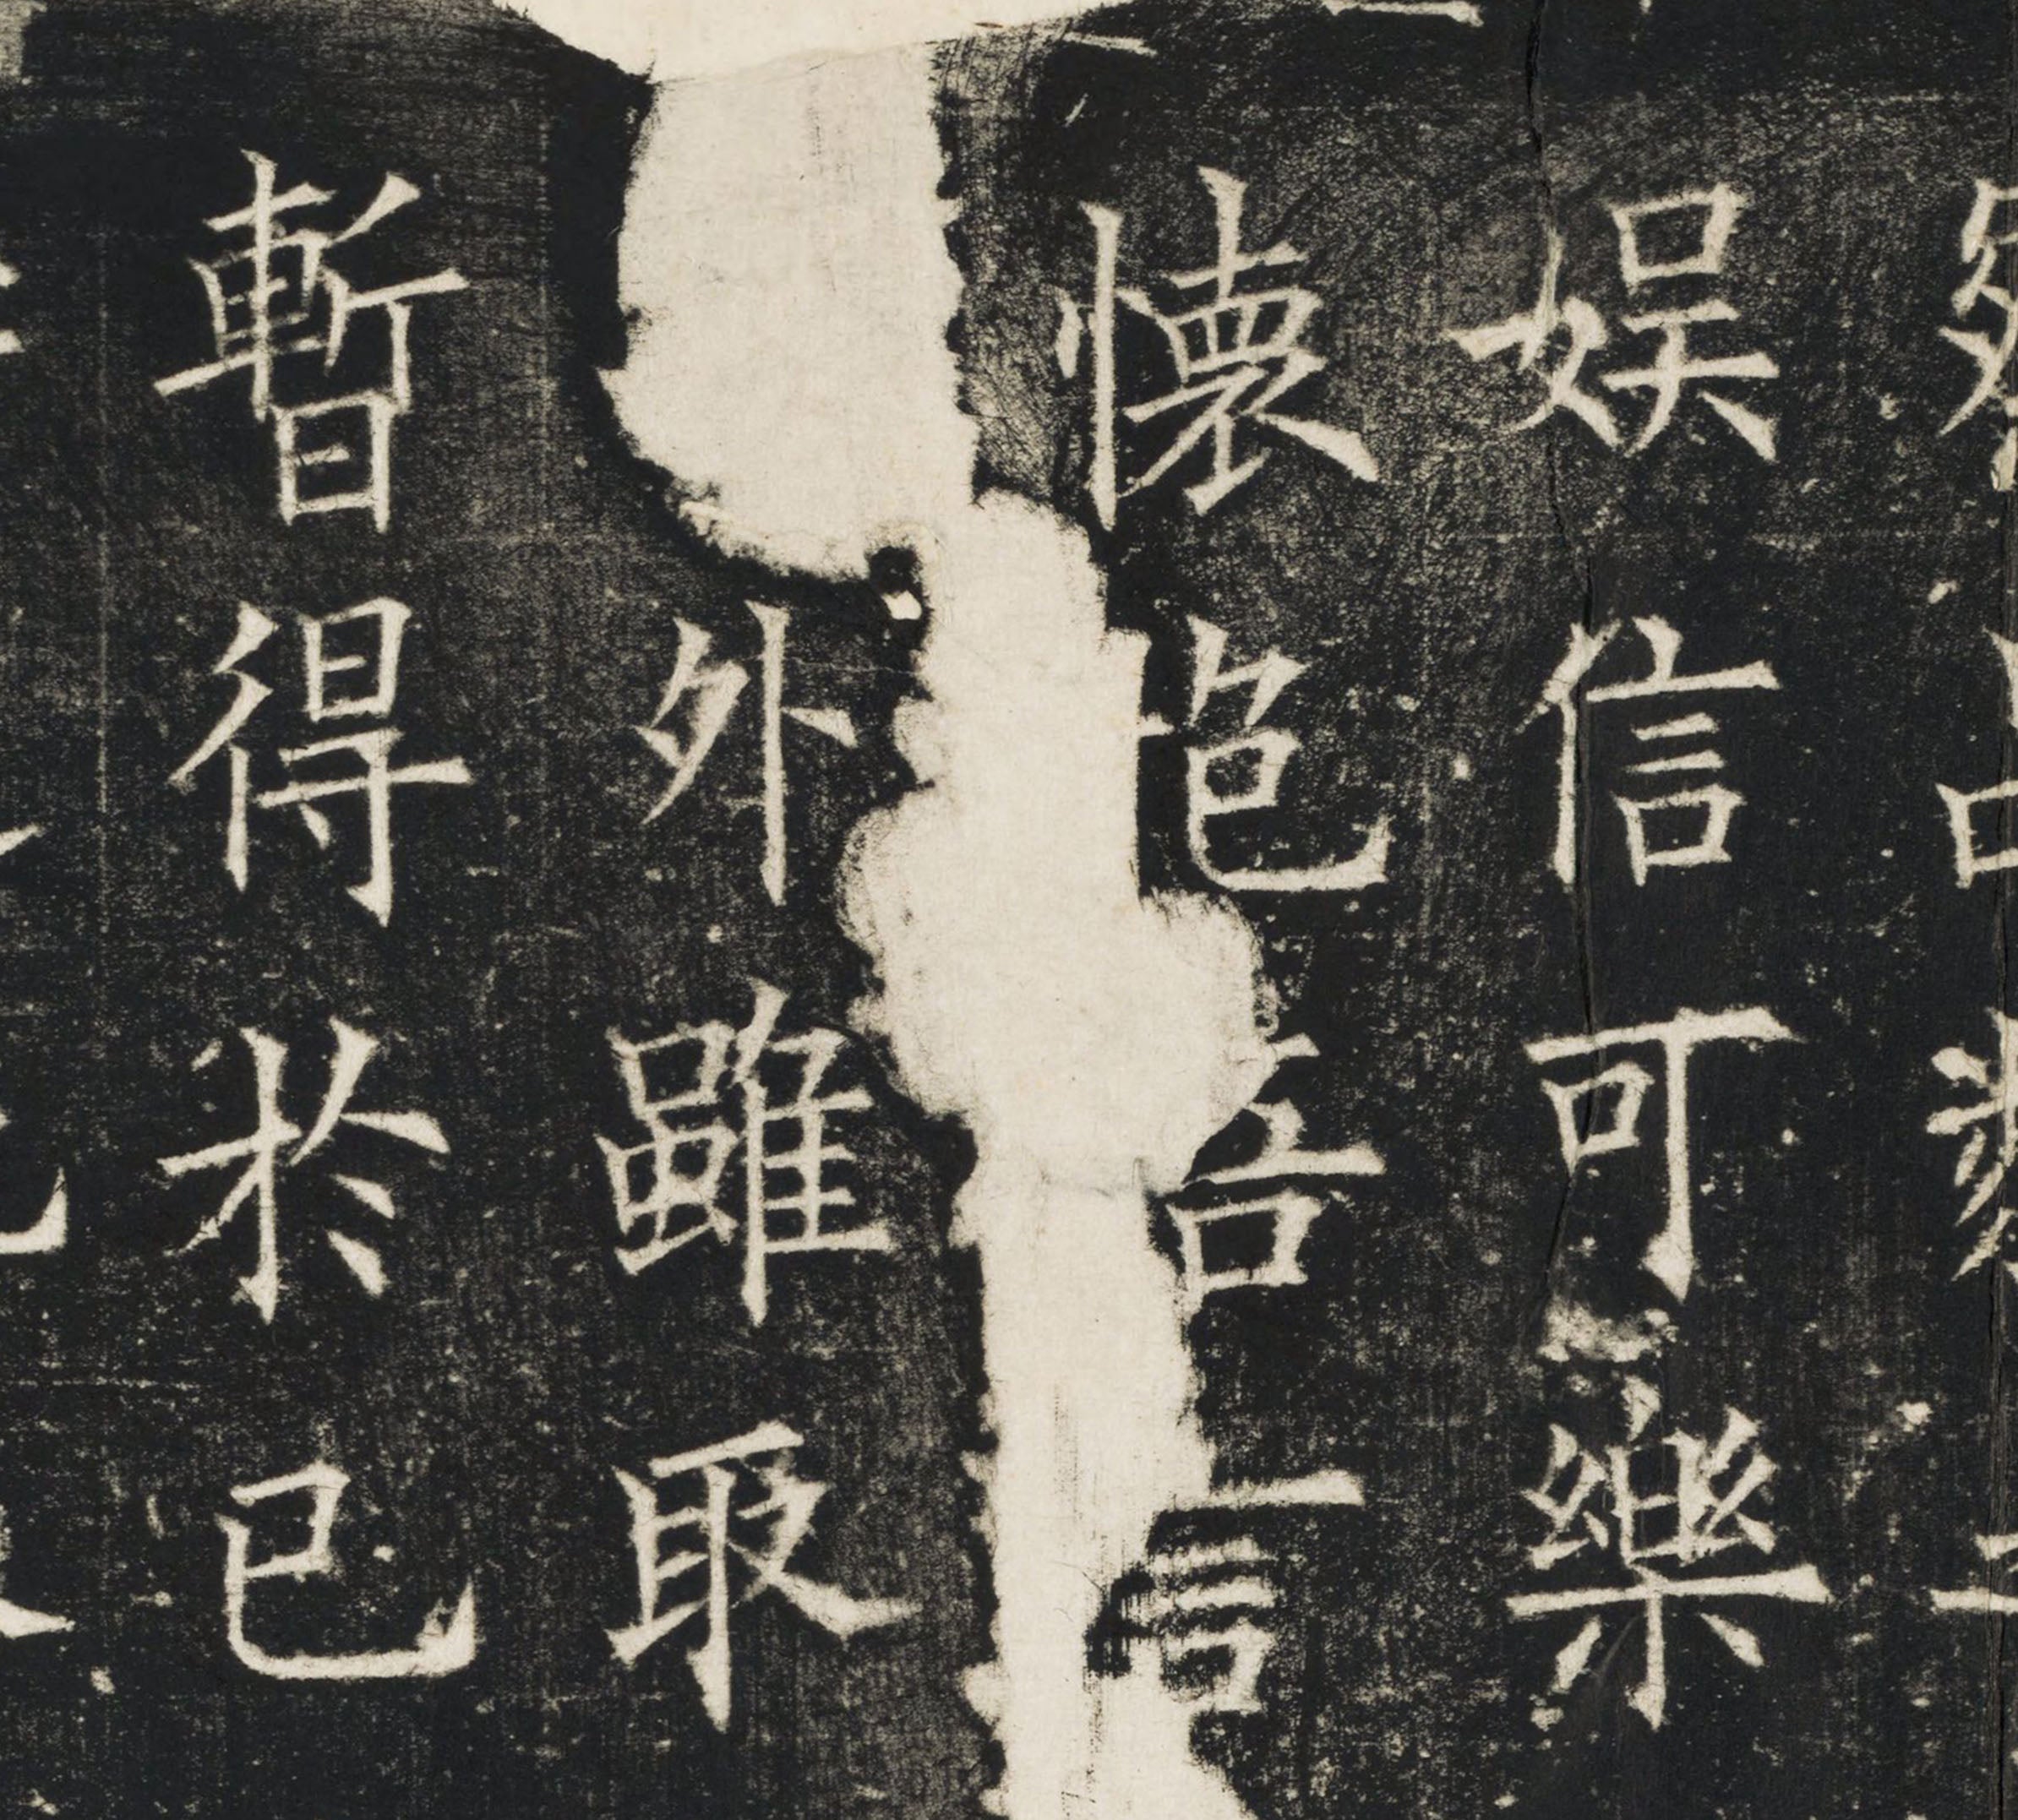 娛信可樂
懷抱悟言一
外雖取
暫得於己